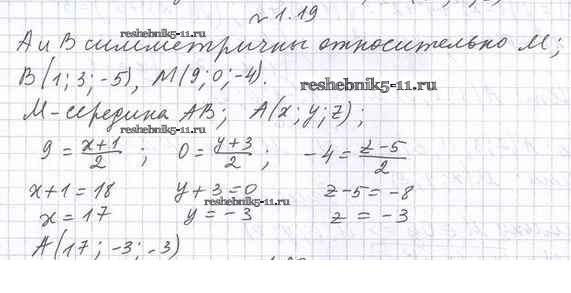 №1.19
reshebnik5-11.ru
А и В симметричны относительно М;
В(1; 3; -5), М(9; 0; -4).
reshebnik5-11.ru
М-середина АВ; А(x; y; z);
reshebnik5-11.ru
9 = x+1/2 ; 0 = y+3/2 ; -4 = z-5/2
x+1=18 y+3=0 z-5=-8
reshebnik5-11.ru
x=17 y=-3 z=-3
А(17; -3; -3)